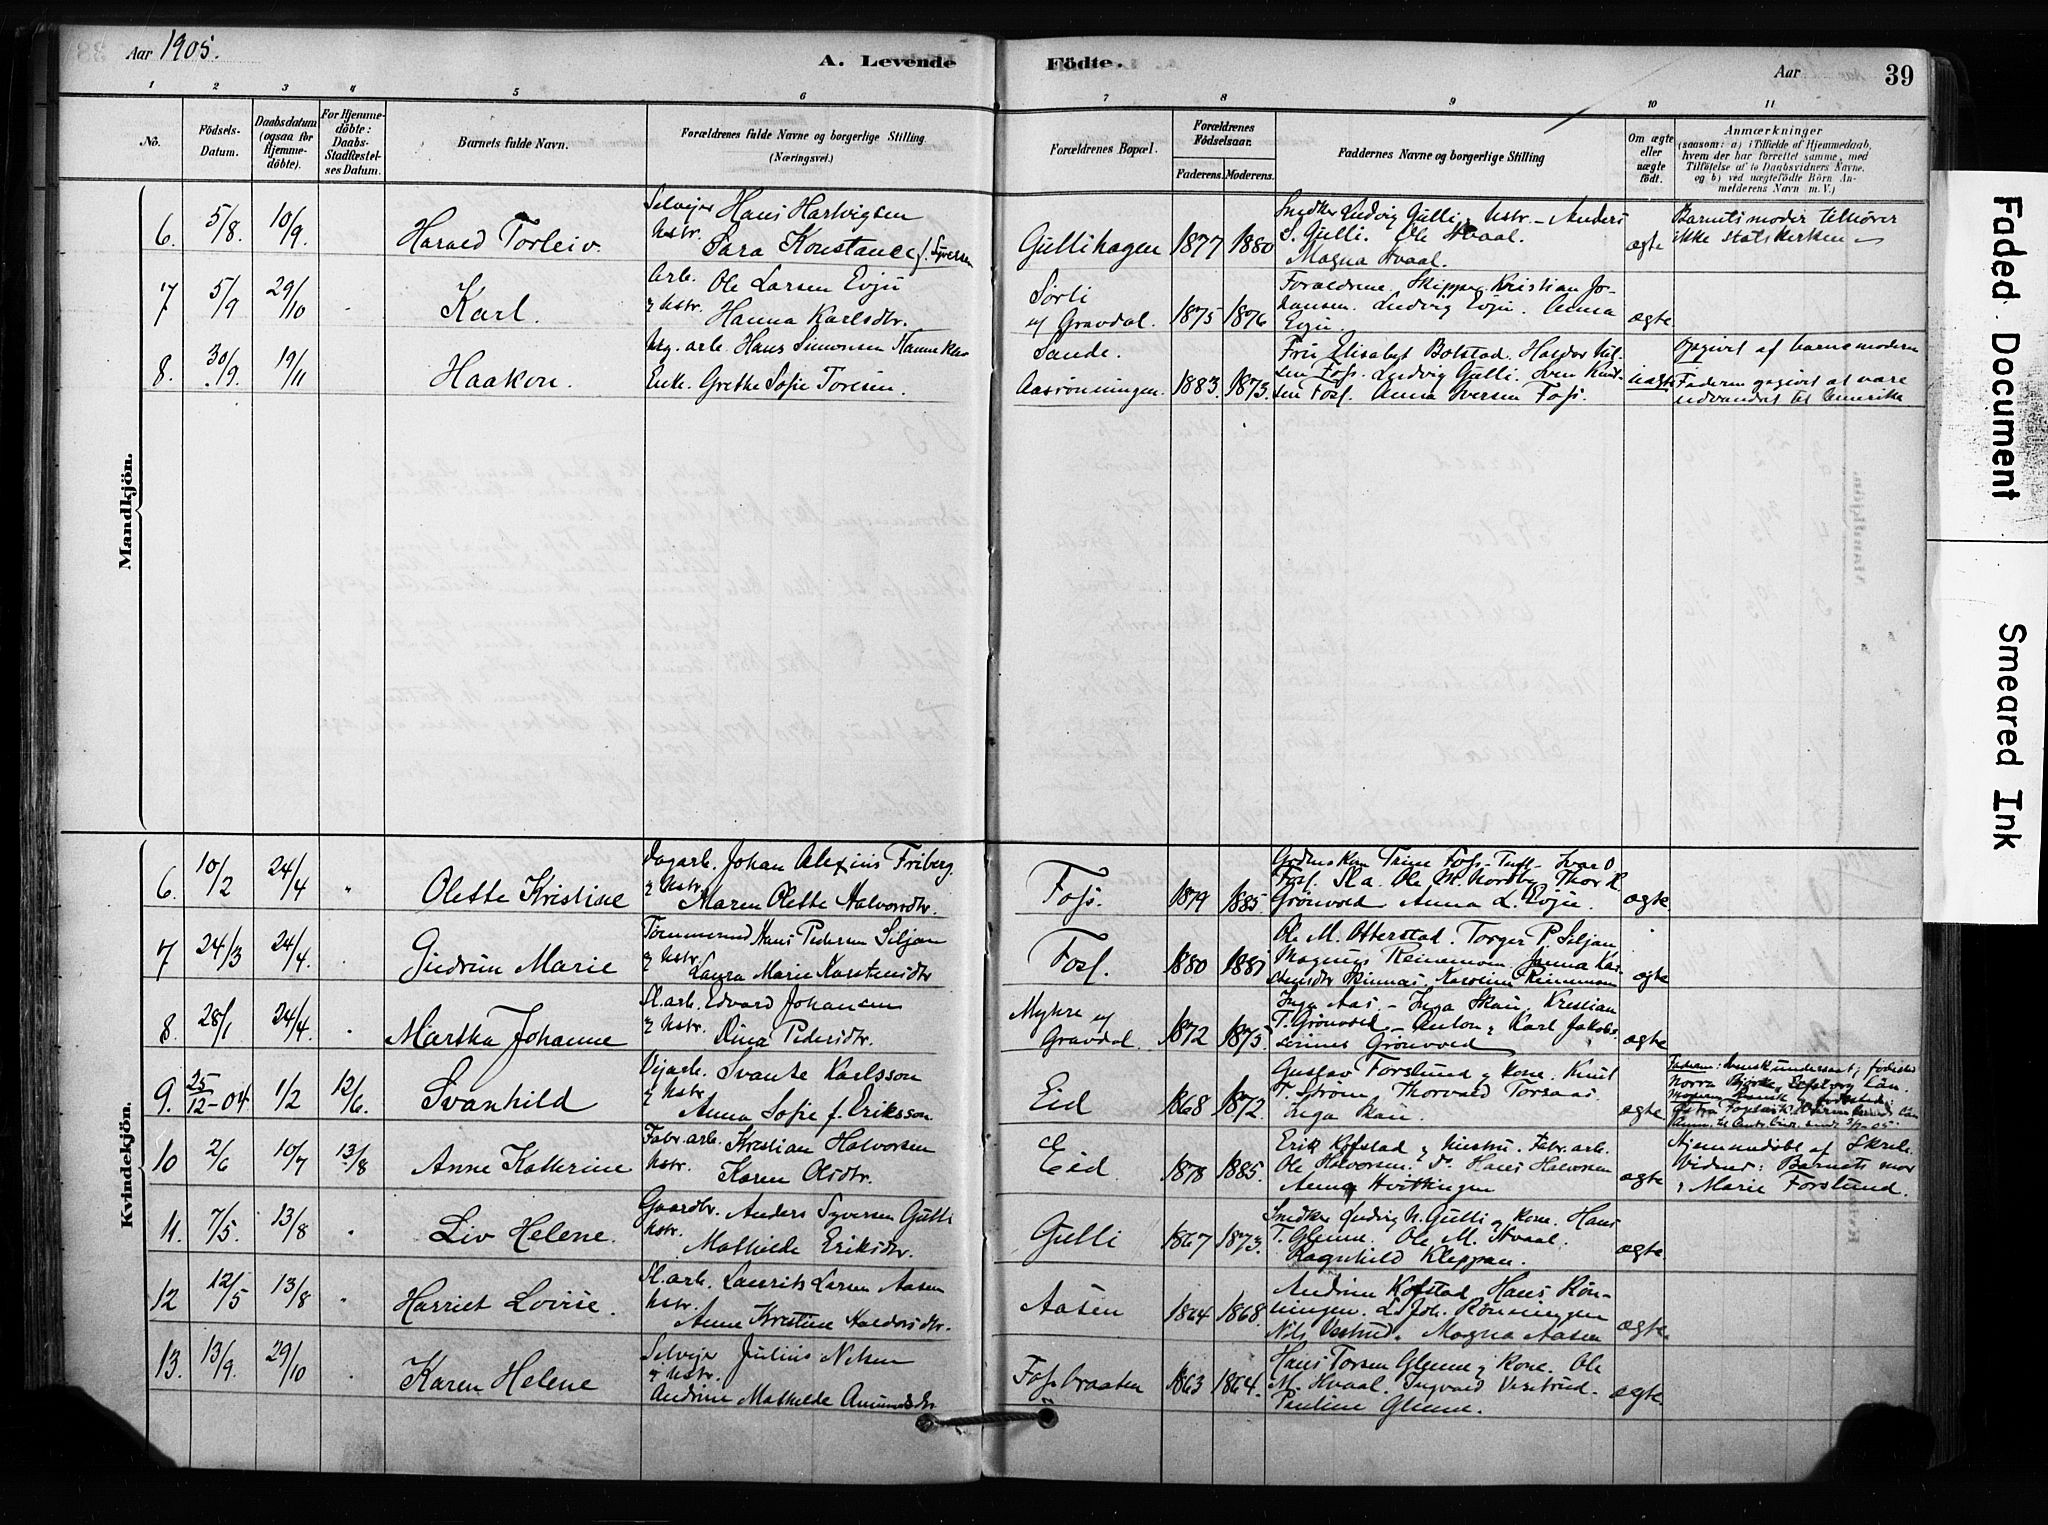 Aar 1905.
A. Levende Födte.
Aar
39
1 2 3 4 5 6 7 8 9 10 11
No.
Födsels-Datum.
Daabsdatum (ogsaa for Hjemmedöbte).
For Hjemmedöbte: Daabs-Stadfæstelses Datum.
Barnets fulde Navn.
Forældrenes fulde Navne og borgerlige Stilling.
(Næringsvei.)
Forældrenes Bopæl.
Forældrenes Födselsaar.
Faderens. Moderens.
Faddernes Navne og borgerlige Stilling
Om ægte eller uægte födt.
Anmærkninger
(saasom: a) i Tilfælde af Hjemmedaab,
hvem der har forrettet samme, med
Tilföielse af to Daabsvidners Navne,
og b) ved uægtefödte Börn Anmelderens Navn m. V.)
Mandkjön.
6. 5/8. 10/9. Harald Torleiv.
Selveier Hans Hartvigsen
Hstr. Sara Konstance f. Syversen
Gullihagen 1877 1880
Snedker Ludvig Gulli, Hstr. - Anders
S. Gulli. Ole Hvaal.
Magna Hvaal.
ægte
Barnets moder tilhører
ikke statskirken
7 5/9 29/10 Karl.
Arb. Ole Larsen Evju
& Hstr. Hanna Karlsdtr.
Sørli
u/ Gravdal. 1875 1876
Forældrene. Skipper Kristian Johansen. Ludvig Evju. Anna
Evju.
ægte
8. 30/9. 19/11 Haakon.
Ug. arb. Hans Simonsen
Enke Grethe Sofie Toresen.
Sande.
Aasrønningen. 1883. 1873.
Fru Elisabet Bolstad. Haldor
Foss. Ludvig Gulli. Sven Knudsen Foss. Anna Iversen Foss.
uægte
Opgivet af barnemoderen
Faderen opgivet at være
udvandret til Amerika
Kvindekjön.
6. 10/2 24/4 Olette Kristine
Dagarb. Johan Alexius Friberg.
& Hstr. Maren Olette Halvorsdtr.
Foss. 1879 1885.
Trine Foss - Ivar O.
Foss. Ole M. Nordby. Thor K.
Grönvold Anna L. Evju.
ægte
7 24/3 24/4. Gudrun Marie
Tømmermd Hans Pedersen Siljan
& Hstr. Laura Marie Karstensdtr
Foss. 1880 1881
Ole M. Otterstad. Torger P. Siljan
Magnus
ægte
8. 28/1 24/4. Martha Johanne
Sl. arb. Edvard Johansen
& Hstr. Dina Pedersdtr.
Myhre u/
Gravdal. 1872 1875
Inga Aas - Inga Skau, Kristian
T. Grönvold - Anton & Karl Jakobs
Grönvold
ægte
9. 25/12-04. 1/2 12/6. Svanhild
Veiarb. Svante Karlsson
& Hstr. Anna Sofie f. Eriksson
Eid 1868 1872.
Gustav Forslund & kone. Knut
T. Strøm. Thorvald Torsaas.
Inga Skau
ægte
10 2/6 10/7 13/8 Anne Kathrine
Fabr. arb. Kristian Halvorsen
Hstr. Karen Olsdtr.
Eid. 1878 1885.
Erik Kofstad & hustru. Fabr. arb.
Ole Halvorsen. Do Hans Halvorsen
Anna Hvittingen
ægte
Hjemmedöbt af
Vidner: Barnets mor
& Marie Forslund.
11. 7/5. 13/8 Liv Helene.
Gaardbr. Anders Syversen Gulli
Hstr. Mathilde Eriksdtr.
Gulli 1867 1873.
Snedker Ludvig N. Gulli & kone. Hans
T. Glenne. Ole M. Hvaal.
Ragnhild Kleppan.
ægte
12 12/5 13/8 Harriet Lovise.
Sl. arb. Laurits Larsen Aasen
Hstr. Anne Kristine Haldorsdtr.
Aasen 1864 1868.
Andrine Kofstad Hans Rønningen. L. Joh. Rønningen
Nils Vestrud. Magna Aasen
ægte
13. 13/9. 29/10 Karen Helene
Selveier Julius Nilsen
& Hstr.
Andrine Mathilde Amundsdtr
Fossbraaten 1863 1864.
Hans Torsen Glenne & kone. Ole
M. Hvaal. Ingvald Vestrud.
Pauline Glenne.
ægte
Faded Document
Smeared Ink